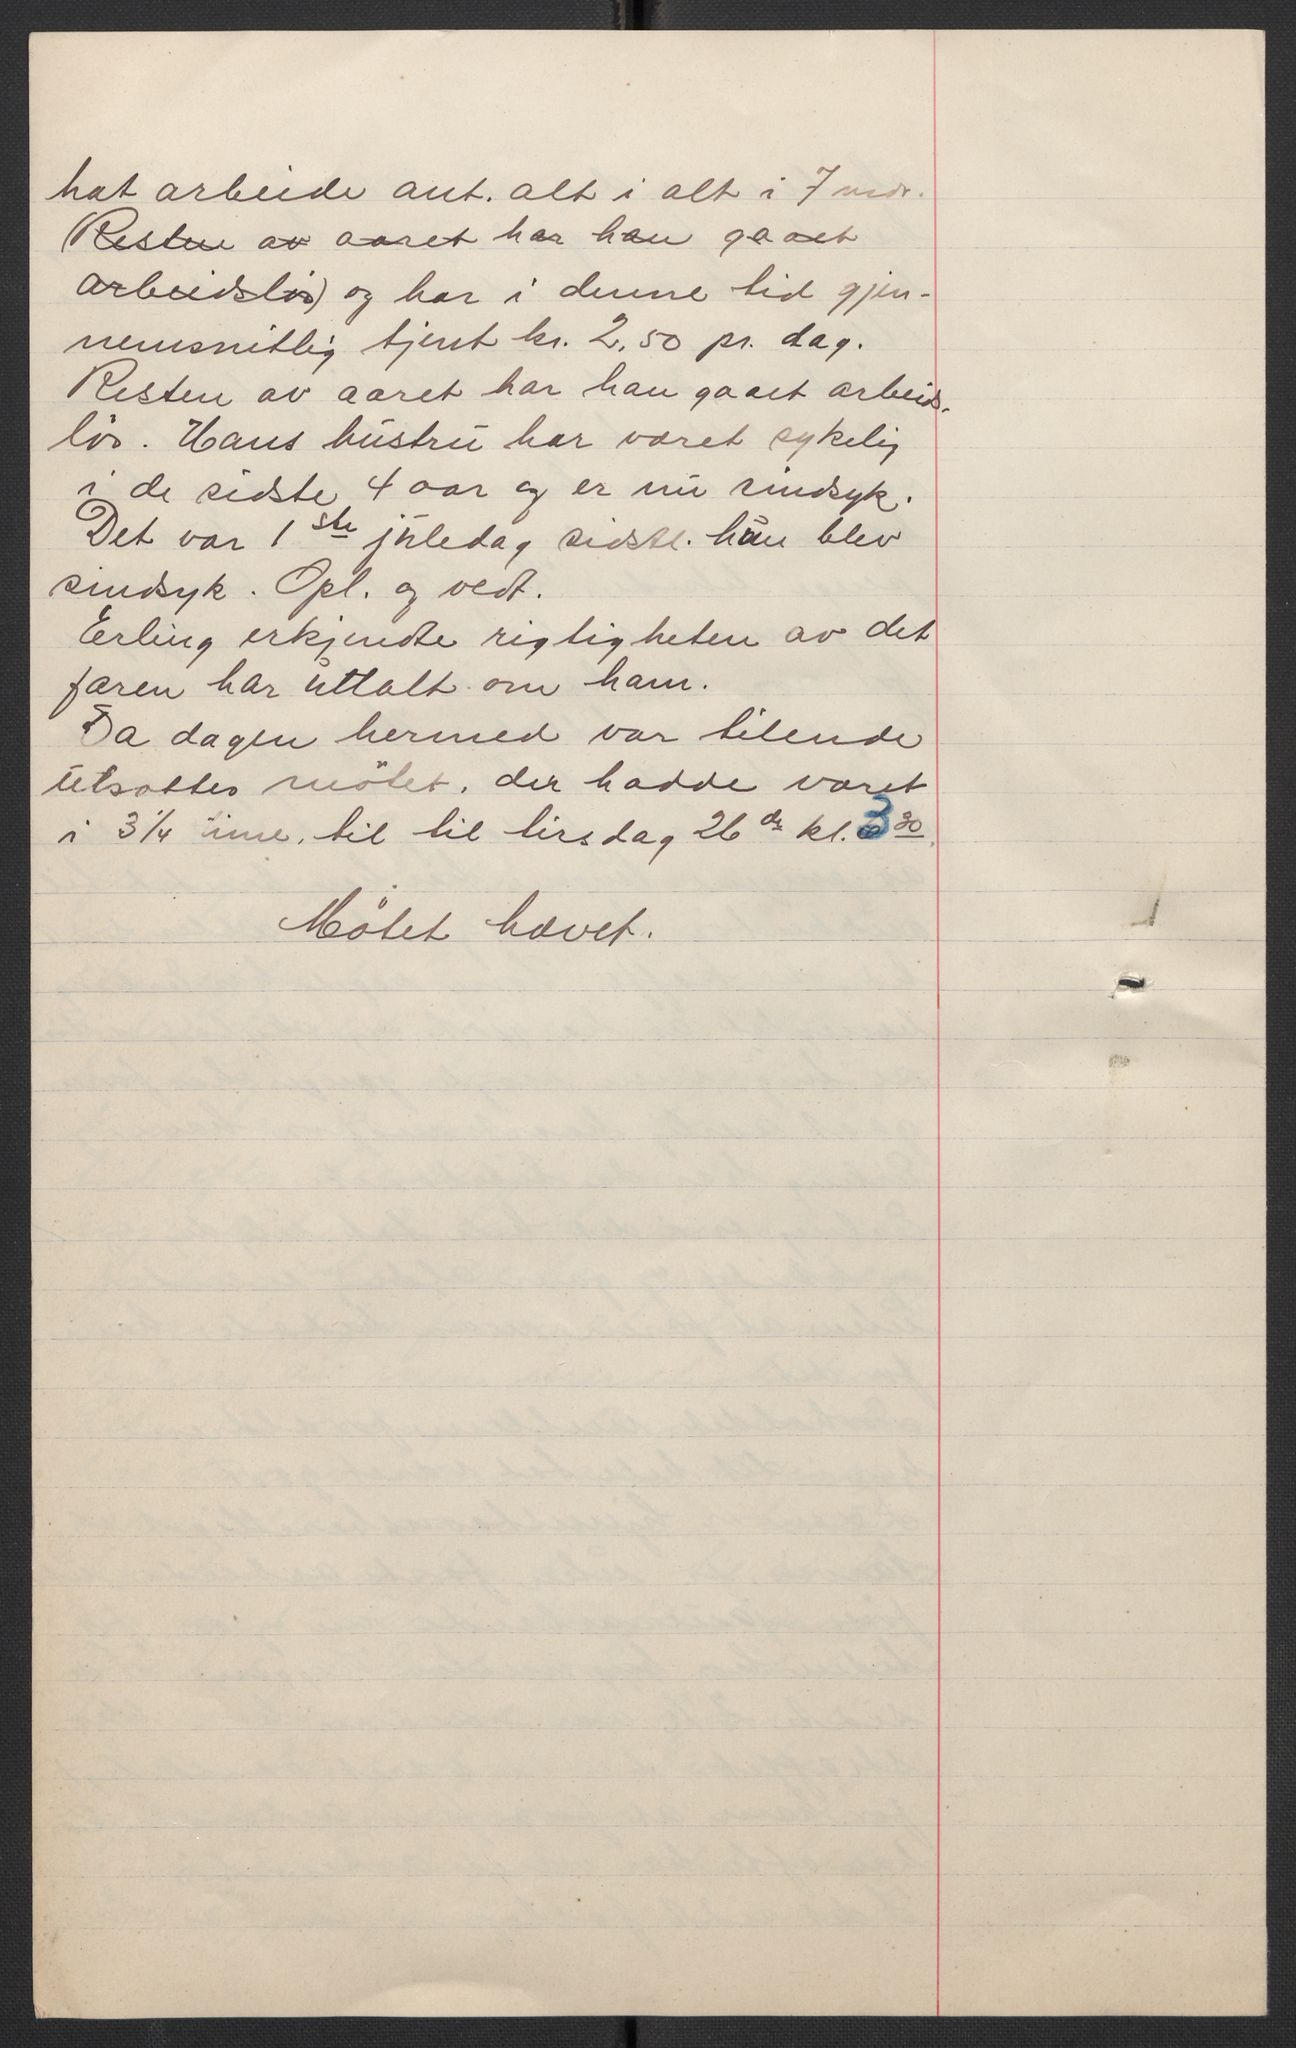 hat arbeide ant. alt i alt i 7 mdr.
(Resten av aaret har han gaaet
arbeidsløs) og har i denne tid gjen-
nemsnitlig tjent kr. 2,50 pr. dag.
Resten av aaret har han gaaet arbeids-
løs. Hans hustru har været sykelig
i de sidste 4 aar og er nu sindsyk.
Det var 1ste juledag sidstl. hun blev
sindsyk. Opl. og vedt.
Erling erkjendte rigtigheten av det
faren har uttalt om ham.
Da dagen hermed var tilende
utsattes mötet, der hadde varet
i 3 1/4 time, til til tirsdag 26 ds kl. 3 30.
Mötet hævet.